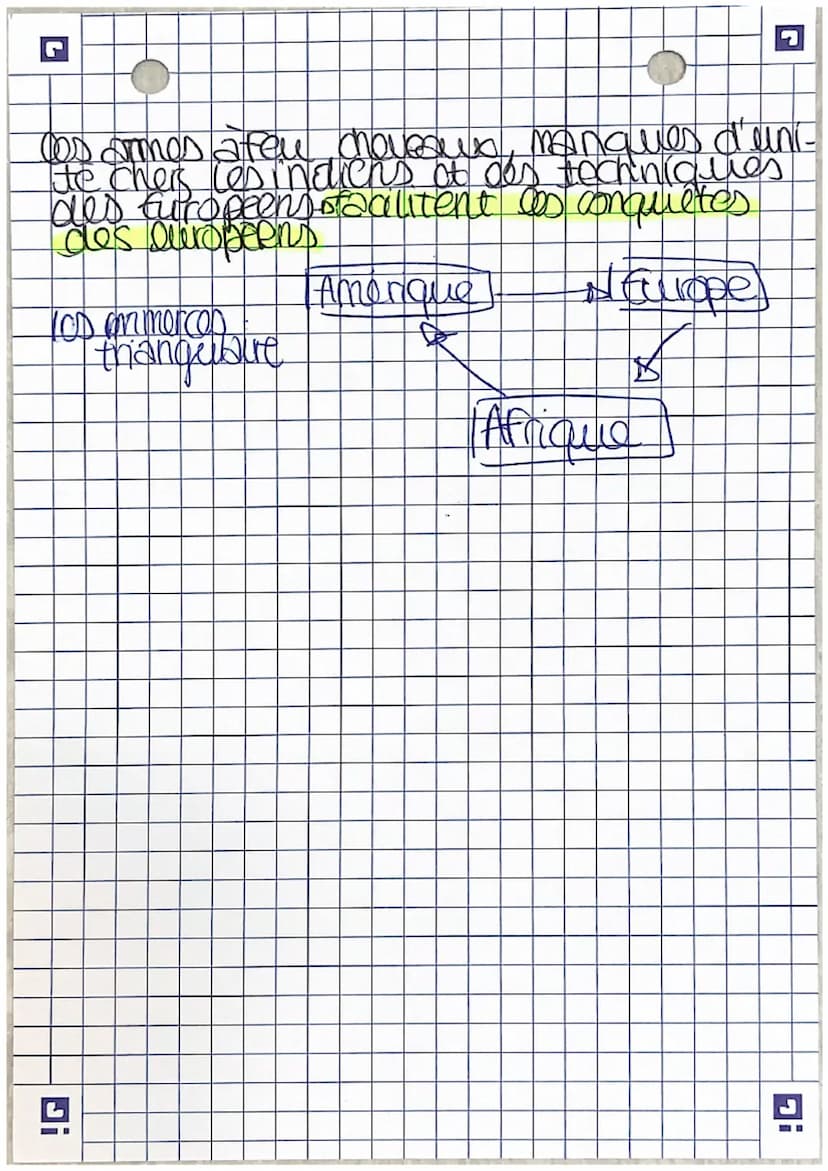 les armes à feu chevaux, manques d'uni-
té chers les indiens et des techniques
des Européens facilitent les conquêtes
des européens
Amérique Europe
les commerces
triangulaire
Afrique